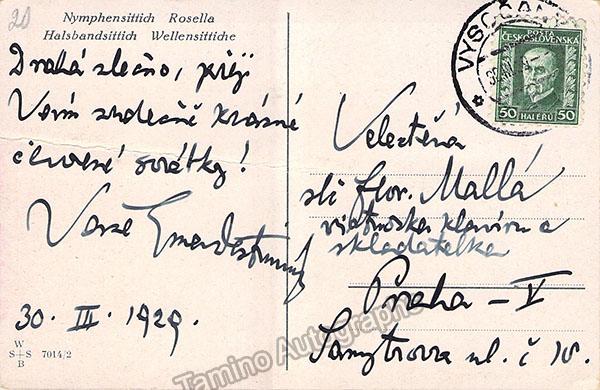 20
Nymphensittich Rosella
Halsbandsittich Wellensittiche
Drahá slečno, přeji
Vám srdečně krásné
červené svátky!
Vaše Ema Destinnová
30. III. 1929.
W
S+S 7014/2
B
VYSOČANY
POŠTA
ČESKOSLOVENSKÁ
50 HALÉŘŮ 50
Velectěná
slč Flor. Mallá
virtuoska klavíru a
skladatelka
Praha – V
Sanytrova ul. č 18.
Tamino Autographs